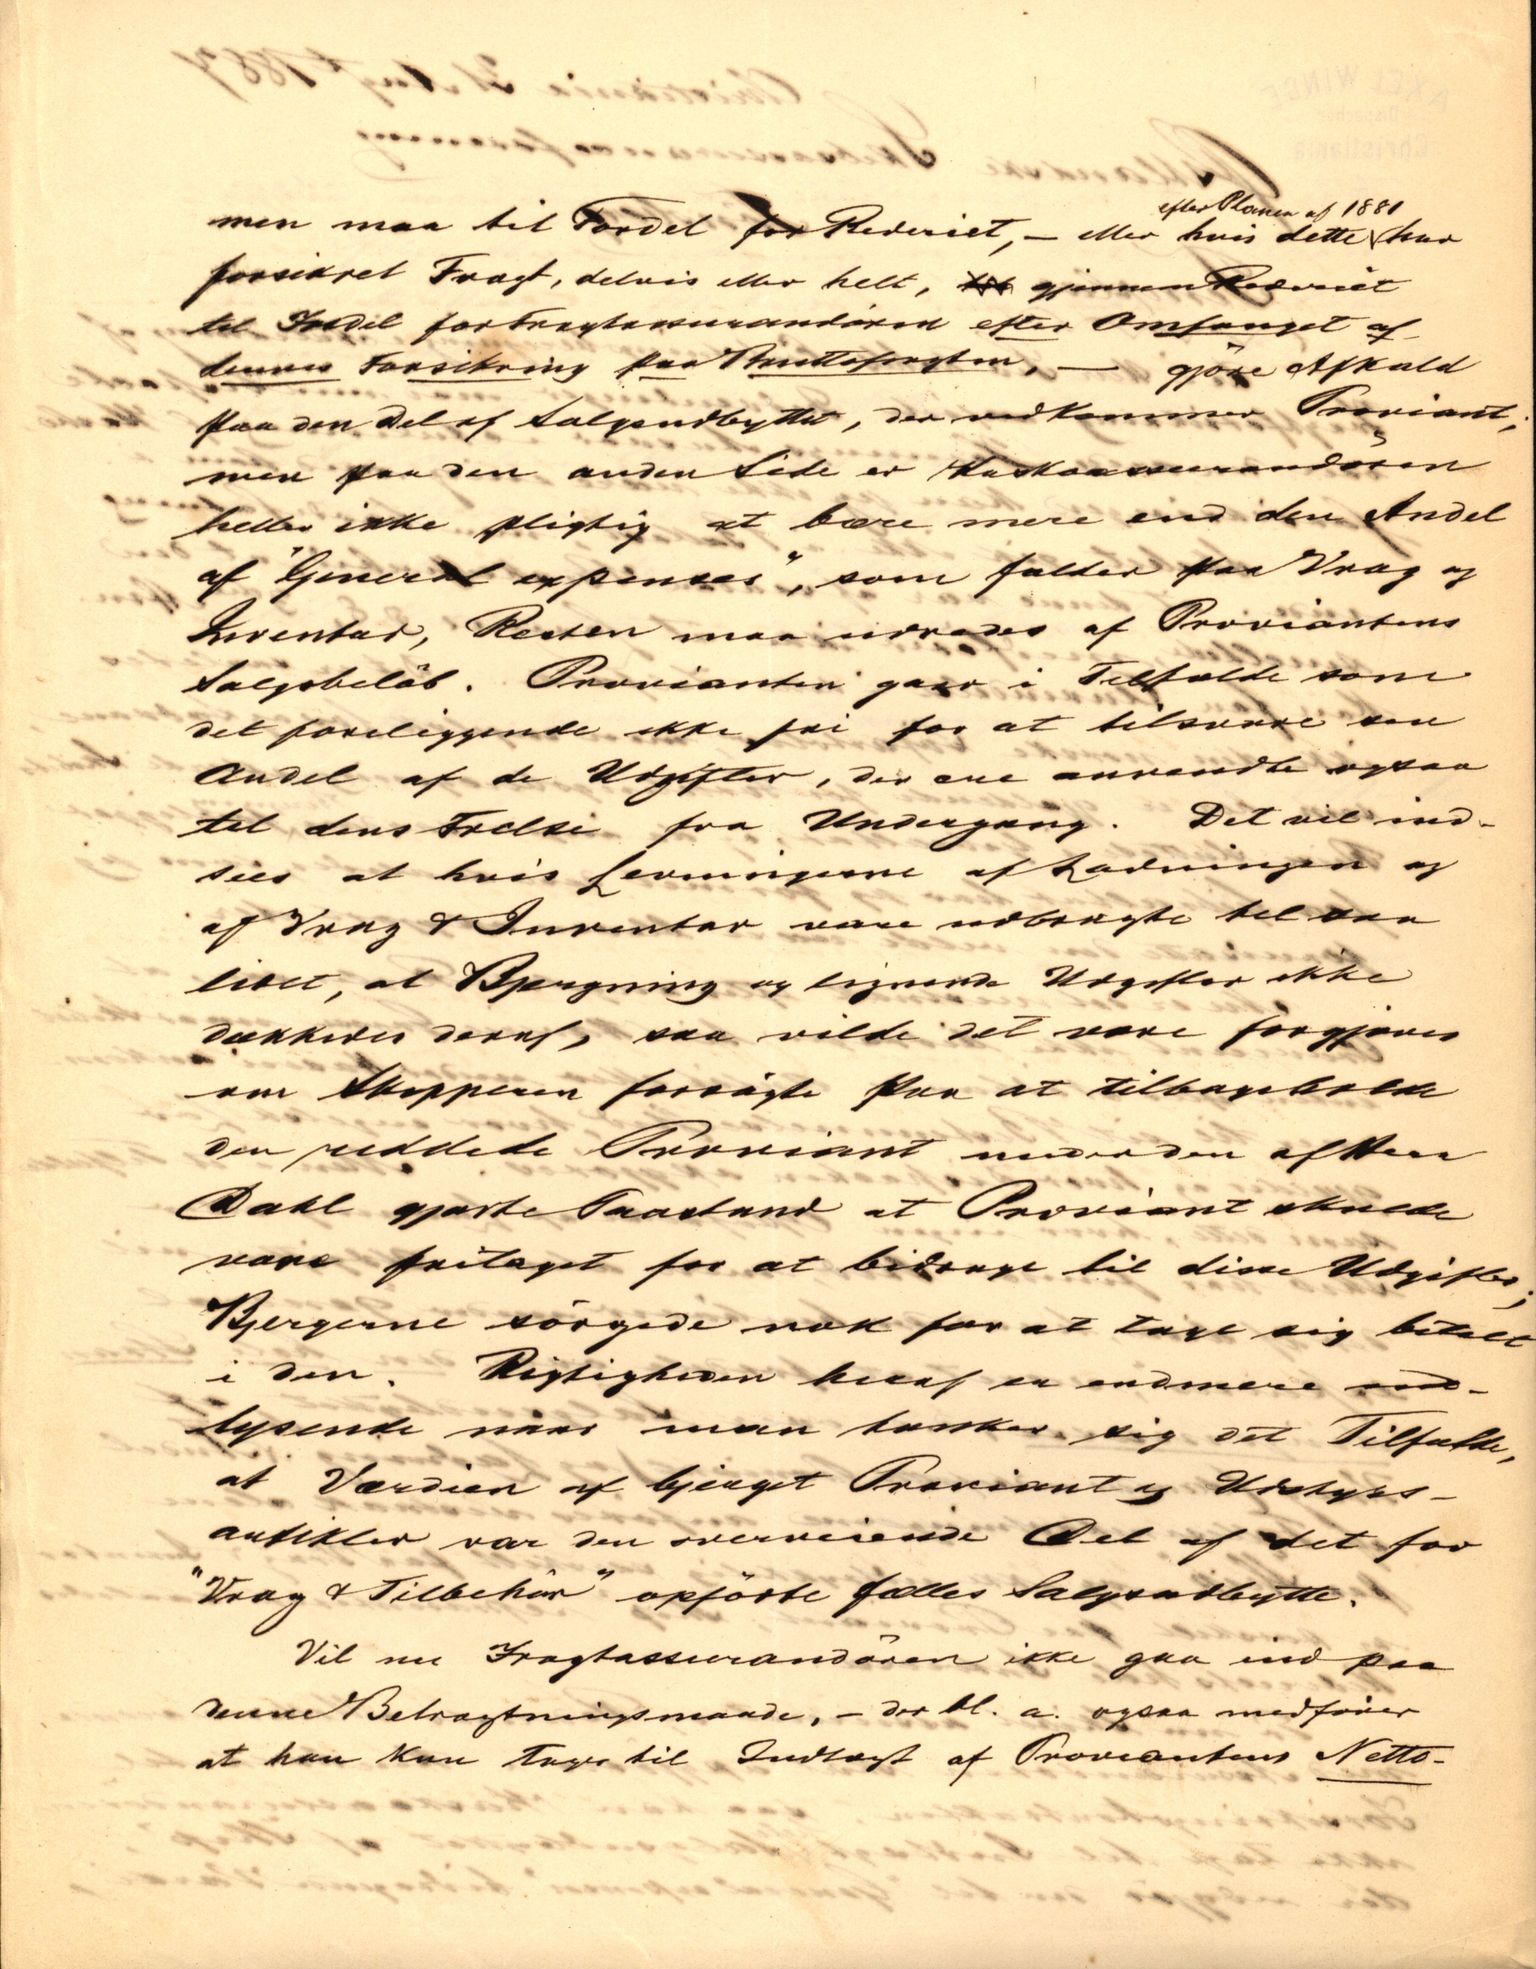 men maa til Fordel for Rederiet, – eller hvis dette efter Planen af 1881 har
forsikret Fragt, delvis eller helt, gjennem Rederiet
til Fordel for Fragtassurandøren efter Omfanget af
dennes Forsikring paa Bruttofragten, — gjöre Afkald
paa den Del af Salgsudbyttet, der vedkommer Proviant;
men paa den anden Side er Kaskoassurandören
heller ikke pligtig at bære mere end den Andel
af "General expenses", som falder paa Vrag og
Inventar, Resten maa udredes af Proviantens
Salgsbelöb. Provianten gaar i Tilfælde som
det foreliggende ikke fri for at tilsvare sin
Andel af de Udgifter, der ere anvendte ogsaa
til dens Frelse fra Undergang. Det vil ind-
sees at hvis Levningerne af Ladningen og
af Vrag & Inventar vare udbragte til saa
lidet, at Bjergning og lignende Udgifter ikke
dækkedes deraf, saa vilde det være forgjæves
om Skipperen forsögte paa at tilbageholde
den reddede Proviant under den af Herr
Dahl gjorte Paastand at Proviant skulde
være fritaget for at bidrage til disse Udgifter;
Bjergerne sörgede nok for at tage sig betalt
i den. Rigtigheden heraf er endmere ind-
lysende naar man tænker sig det Tilfælde,
at Værdien af bjerget Proviant og Udstyrs-
artikler var den overveiende Del af det for
"Vrag & Tilbehör" opförte fælles Salgsudbytte.
Vil nu Fragtassurandören ikke gaa ind paa
denne Betragtningsmaade, – der bl. a. ogsaa medförer
at han kun tager til Indtægt af Proviantens Netto-